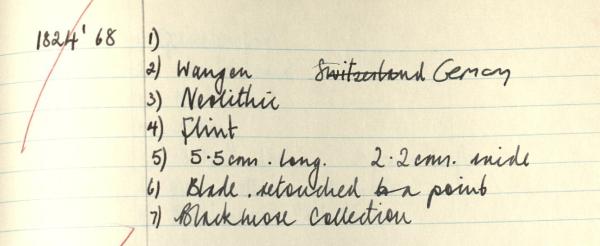 1824' 68 1)
2) Wangen Switzerland Germany
3) Neolithic
4) Flint
5) 5.5cms. long. 2.2cms. wide
6) Blade. retouched to a point
7) Blackmore Collection